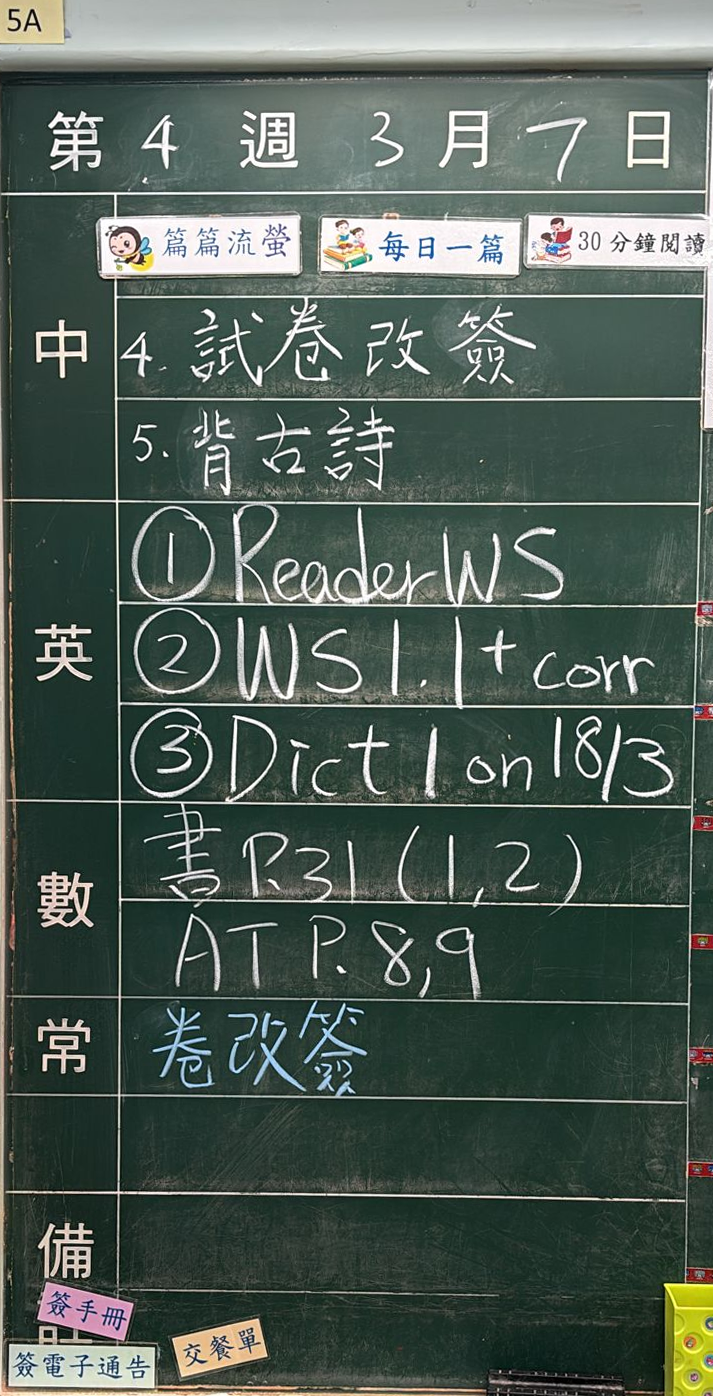 5A
第 4 週 3 月 7 日
篇篇流螢 每日一篇 30分鐘閱讀
中
4. 試卷改簽
5. 背古詩
英
① Reader WS
② WS 1.1 + corr
③ Dict 1 on 18/3
數
書 P.31 (1,2)
AT P. 8,9
常
卷改簽
備
簽手冊
簽電子通告
交餐單